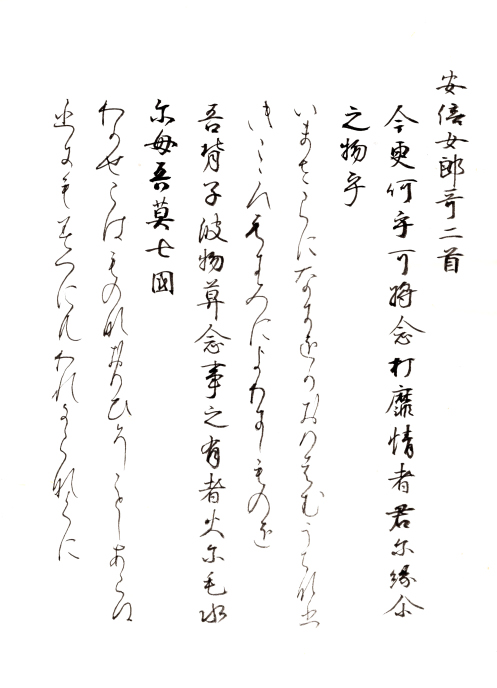 安倍女郎哥二首
今更何乎可将念打靡情者君尓縁尓
之物乎
いまさらになにをかおもはむうちなひ
きこゝろはきみによりにしものを
吾背子波物莫念事之有者火尓毛水
尓母吾莫七國
わかせこはものなおもひそことしあらは
ひにもみつにもわれなけなくに